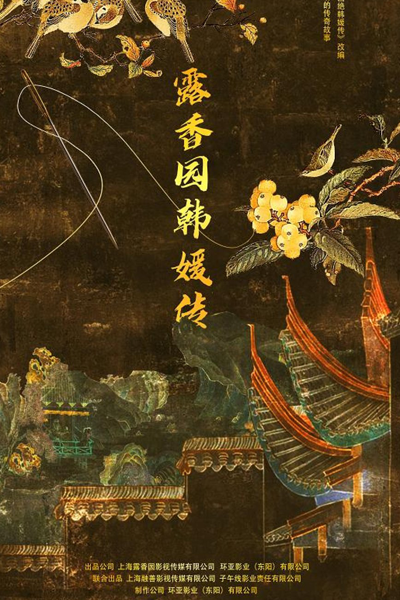 绝韩媛传》改编
的传奇故事
露香园韩媛传
出品公司 上海露香园影视传媒有限公司 环亚影业（东阳）有限公司
联合出品 上海融善影视传媒有限公司 子午线影业有限责任公司
制作公司 环亚影业（东阳）有限公司